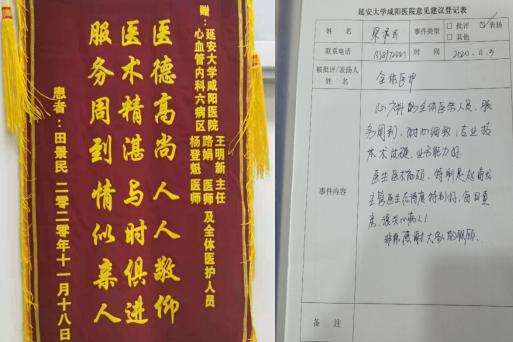 赠：延安大学咸阳医院
心血管内科六病区
王明新 主任
路娟 医师
杨登魁 医师
及全体医护人员
医德高尚人人敬仰
医术精湛与时俱进
服务周到情似亲人
患者：田景民 二零二零年十一月十八日
延安大学咸阳医院意见建议登记表
姓名
事件类型
批评
表扬
其他
联系电话
时间
2020.11.3
被批评/表扬人
姓名
全体医护
事件内容
心内科的全体医务人员，服
务周到，耐心细致，专业技
术过硬，业务能力好。
医生医术高超，特别是
主管医生态度特别好，每日
备注